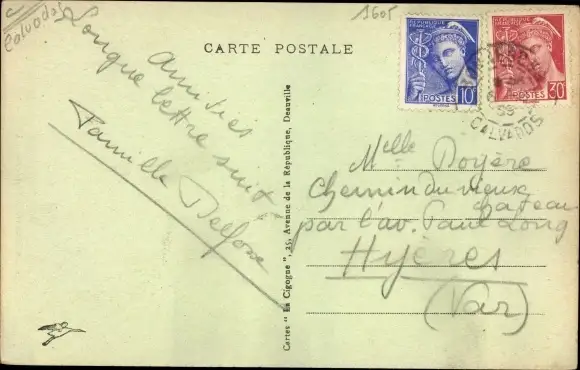 Calvados
1605
CARTE POSTALE
Amitiés
Longue lettre suit
Famille Delfosse
RÉPUBLIQUE FRANÇAISE
POSTES
10
RÉPUBLIQUE FRANÇAISE
POSTES
30
CALVADOS
Melle Doyère
Chemin du vieux
chateau
par l'av. Paul Long
Hyères
(Var)
Cartes "La Cigogne", 25, Avenue de la République, Deauville